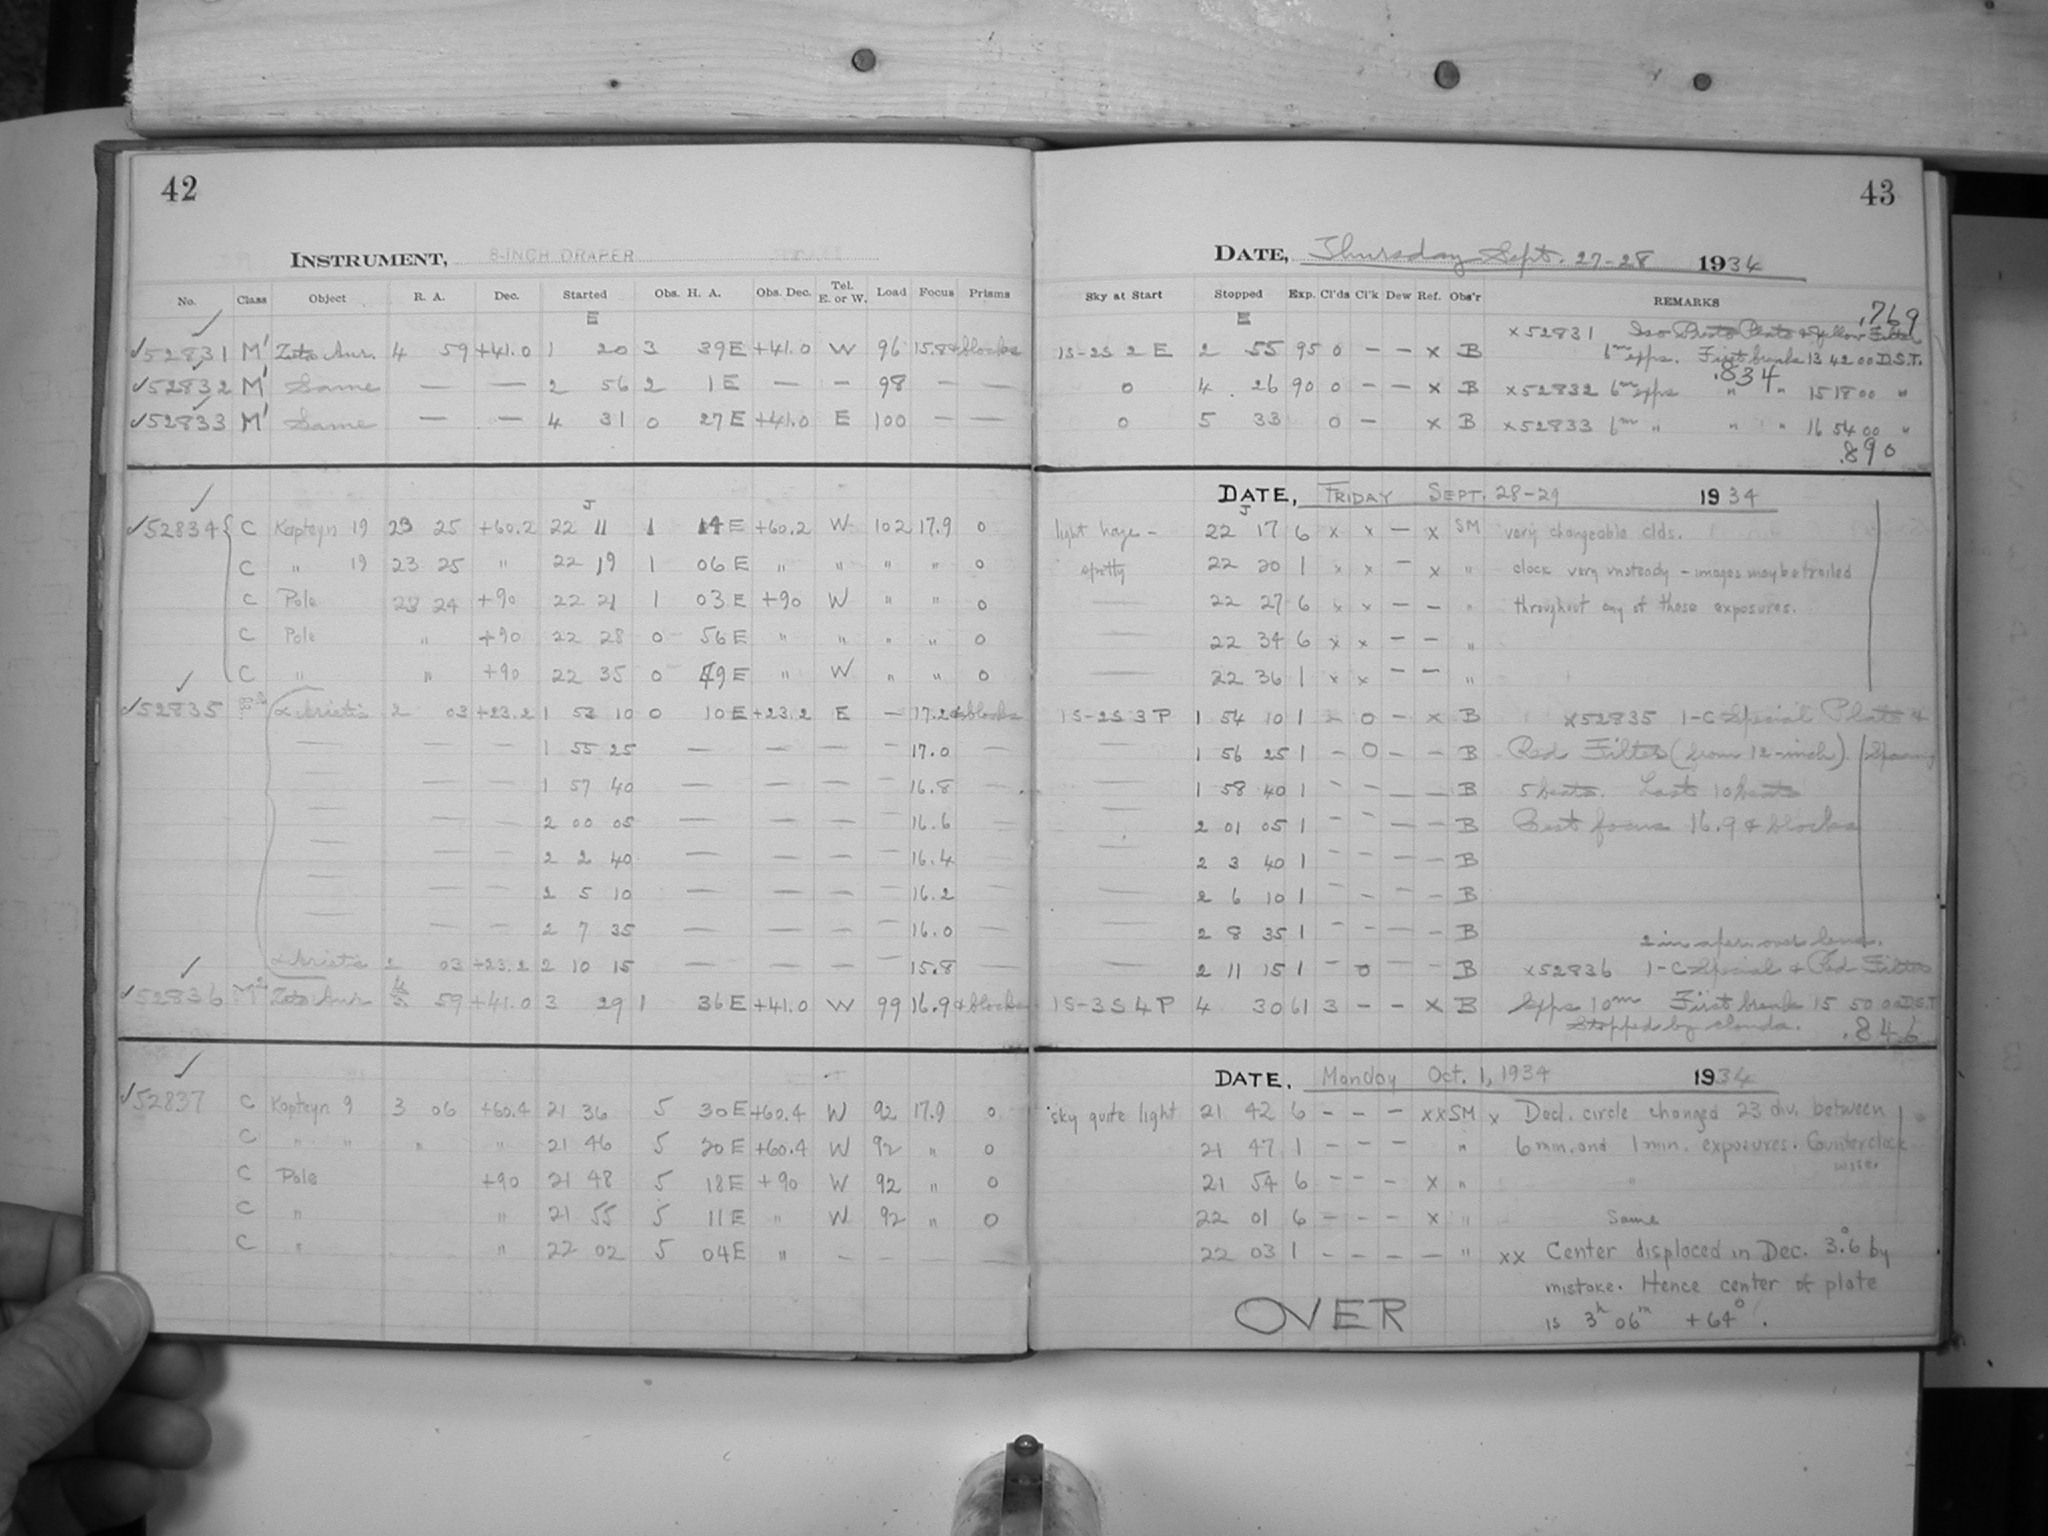 42
INSTRUMENT, 8-INCH DRAPER
No. Class Object R. A. Dec. Started Obs. H. A. Obs. Dec. Tel. E. or W. Load Focus Prisms
E
52831 M' Zeta Aur. 4 59 +41.0 1 20 3 39 E +41.0 W 96 15.8 & blocks
52832 M' Same — — 2 56 2 1 E — — 98 — —
52833 M' Same — — 4 31 0 27 E +41.0 E 100 — —
J
52834 C Kapteyn 19 23 25 +60.2 22 11 1 14 E +60.2 W 102 17.9 0
C " 19 23 25 " 22 19 1 06 E " " " " 0
C Pole 23 24 +90 22 21 1 03 E +90 W " " 0
C Pole " +90 22 28 0 56 E " " " " 0
C " " +90 22 35 0 49 E " W " " 0
52835 α Arietis 2 03 +23.2 1 53 10 0 10 E +23.2 E — 17.2 & blocks
— — — 1 55 25 — — — — 17.0 —
— — — 1 57 40 — — — — 16.8 —
— — — 2 00 05 — — — — 16.6 —
— — — 2 2 40 — — — — 16.4 —
— — — 2 5 10 — — — — 16.2 —
— — — 2 7 35 — — — — 16.0 —
α Arietis 2 03 +23.2 2 10 15 — — — — 15.8 —
52836 M² Zeta Aur. 4 59 +41.0 3 29 1 36 E +41.0 W 99 16.9 & blocks
52837 C Kapteyn 9 3 06 +60.4 21 36 5 30 E +60.4 W 92 17.9 0
C " " " " 21 46 5 20 E +60.4 W 92 " 0
C Pole +90 21 48 5 18 E +90 W 92 " 0
C " " 21 55 5 11 E " W 92 " 0
C " " 22 02 5 04 E " — — — —
43
DATE, Thursday Sept. 27-28 1934
Sky at Start Stopped Exp. Cl'ds Cl'k Dew Ref. Obs'r REMARKS
E
.769
x52831 Iso Photo Plate & Yellow Filter
1S-2S 2 E 2 55 95 0 — — x B 6m exps. First break 13 42 00 D.S.T.
.834
0 4 26 90 0 — — x B x52832 6m exps " " 15 18 00 "
0 5 33 0 — x B x52833 6m " " " 16 54 00 "
.890
DATE, FRIDAY SEPT. 28-29 1934
J
light haze - 22 17 6 x x — x SM very changeable clds.
spotty 22 20 1 x x — x " clock very unsteady - images may be trailed
— 22 27 6 x x — — " throughout any of these exposures.
— 22 34 6 x x — — "
— 22 36 1 x x — — "
1S-2S 3 P 1 54 10 1 — 0 — x B x52835 1-C Special Plate &
— 1 56 25 1 — 0 — — B Red Filter (from 12-inch). Spacing
— 1 58 40 1 — — — — B 5 beats. Last 10 beats
— 2 01 05 1 — — — — B Best focus 16.9 & blocks
— 2 3 40 1 — — — — B
— 2 6 10 1 — — — B
— 2 8 35 1 — — — — B
2 in aper. over lens.
— 2 11 15 1 — 0 — B x52836 1-C Special & Red Filter
1S-3S 4 P 4 30 61 3 — — x B Exps 10m First break 15 50 00 D.S.T
Stopped by clouds. .846
DATE, Monday Oct. 1, 1934 1934
sky quite light 21 42 6 — — — xx SM x Decl. circle changed 23 div. between
21 47 1 — — — " 6 min. and 1 min. exposures. Counterclock
wise.
21 54 6 — — — x " "
22 01 6 — — — x " Same
22 03 1 — — — — " xx Center displaced in Dec. 3.°6 by
mistake. Hence center of plate
is 3h 06m +64°.
OVER